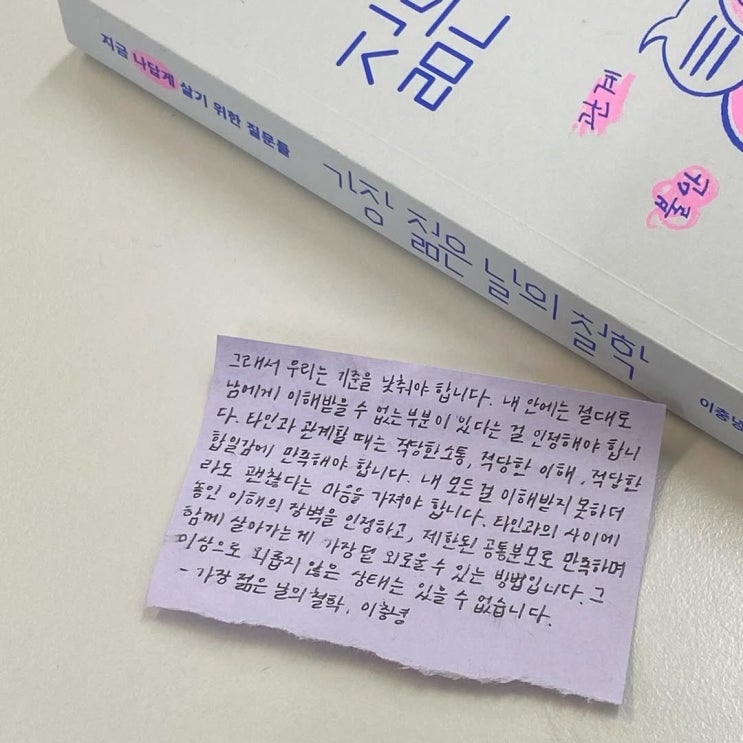 지금 나답게 살기 위한 질문들
가장 젊은 날의 철학
이충녕
관계
공부
그래서 우리는 기준을 낮춰야 합니다. 내 안에는 절대로
남에게 이해받을 수 없는 부분이 있다는 걸 인정해야 합니
다. 타인과 관계할 때는 적당한 소통, 적당한 이해, 적당한
합일감에 만족해야 합니다. 내 모든 걸 이해받지 못하더
라도 괜찮다는 마음을 가져야 합니다. 타인과의 사이에
놓인 이해의 장벽을 인정하고, 제한된 공통분모로 만족하며
함께 살아가는 게 가장 덜 외로울 수 있는 방법입니다. 그
이상으로 외롭지 않은 상태는 있을 수 없습니다.
- 가장 젊은 날의 철학, 이충녕